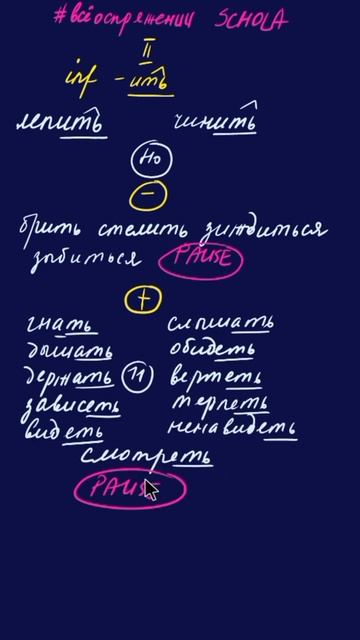 #всіоспряжении SCHOLA
II
inf -ить
лепить чинить
но
−
брить стелить зиждиться
зыбиться PAUSE
+
гнать слышать
дышать обидеть
держать 11 вертеть
зависеть терпеть
видеть ненавидеть
смотреть
PAUSE